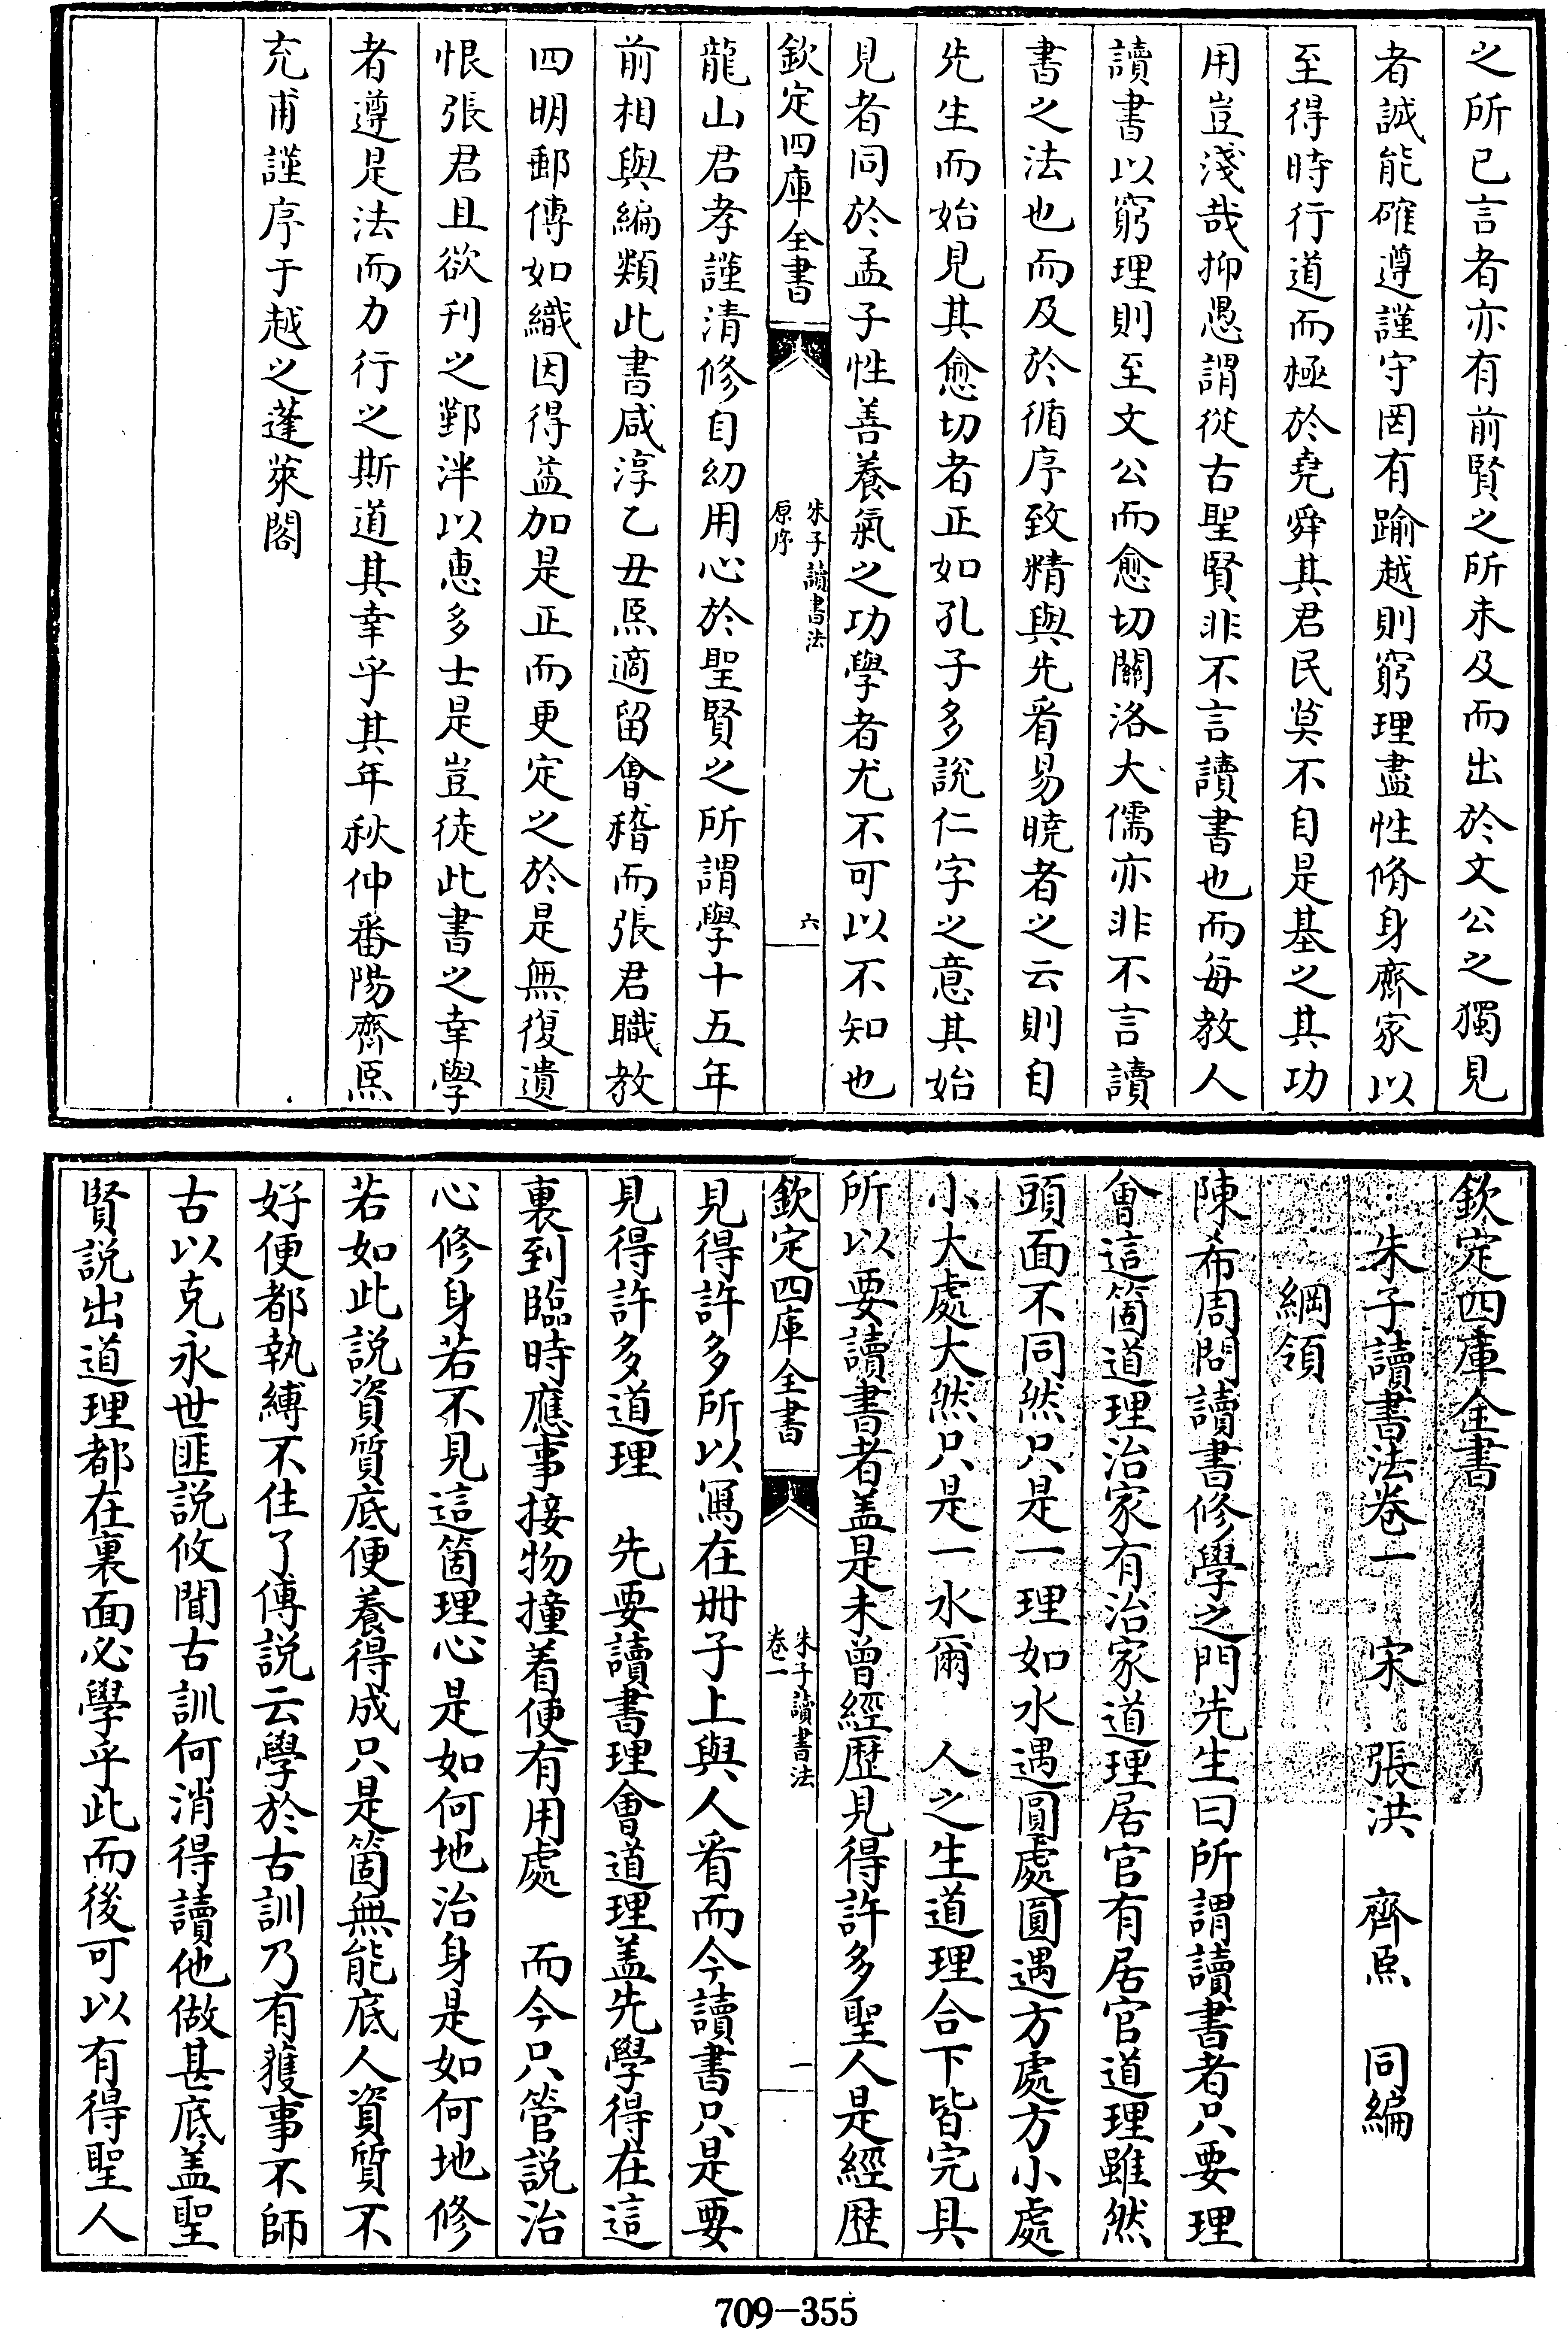 之所已言者亦有前賢之所未及而出於文公之獨見
者誠能確遵謹守罔有踰越則窮理盡性脩身齊家以
至得時行道而極於堯舜其君民莫不自是基之其功
用豈淺哉抑愚謂從古聖賢非不言讀書也而每教人
讀書以窮理則至文公而愈切關洛大儒亦非不言讀
書之法也而及於循序致精與先看易曉者之云則自
先生而始見其愈切者正如孔子多說仁字之意其始
見者同於孟子性善養氣之功學者尤不可以不知也
欽定四庫全書
朱子讀書法
原序
六
龍山君孝謹清修自幼用心於聖賢之所謂學十五年
前相與編類此書咸淳乙丑熙適留會稽而張君職教
四明郵傳如織因得益加是正而更定之於是無復遺
恨張君且欲刊之鄞泮以惠多士是豈徒此書之幸學
者遵是法而力行之斯道其幸乎其年秋仲番陽齊熙
充甫謹序于越之蓬萊閣
欽定四庫全書
朱子讀書法卷一 宋 張洪 齊熙 同編
綱領
陳希周問讀書修學之門先生曰所謂讀書者只要理
會這箇道理治家有治家道理居官有居官道理雖然
頭面不同然只是一理如水遇圓處圓遇方處方小處
小大處大然只是一水爾 人之生道理合下皆完具
所以要讀書者盖是未曾經歷見得許多聖人是經歷
欽定四庫全書
朱子讀書法
卷一
一
見得許多所以寫在冊子上與人看而今讀書只是要
見得許多道理 先要讀書理會道理盖先學得在這
裏到臨時應事接物撞着便有用處 而今只管説治
心修身若不見這箇理心是如何地治身是如何地修
若如此説資質底便養得成只是箇無能底人資質不
好便都執縛不住了傅説云學於古訓乃有獲事不師
古以克永世匪説攸聞古訓何消得讀他做甚底盖聖
賢説出道理都在裏面必學乎此而後可以有得聖人
709-355